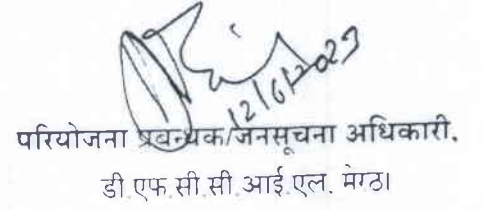 12/6/2023
परियोजना प्रबन्धक/जनसूचना अधिकारी.
डी.एफ.सी.सी.आई.एल. मेरठ।